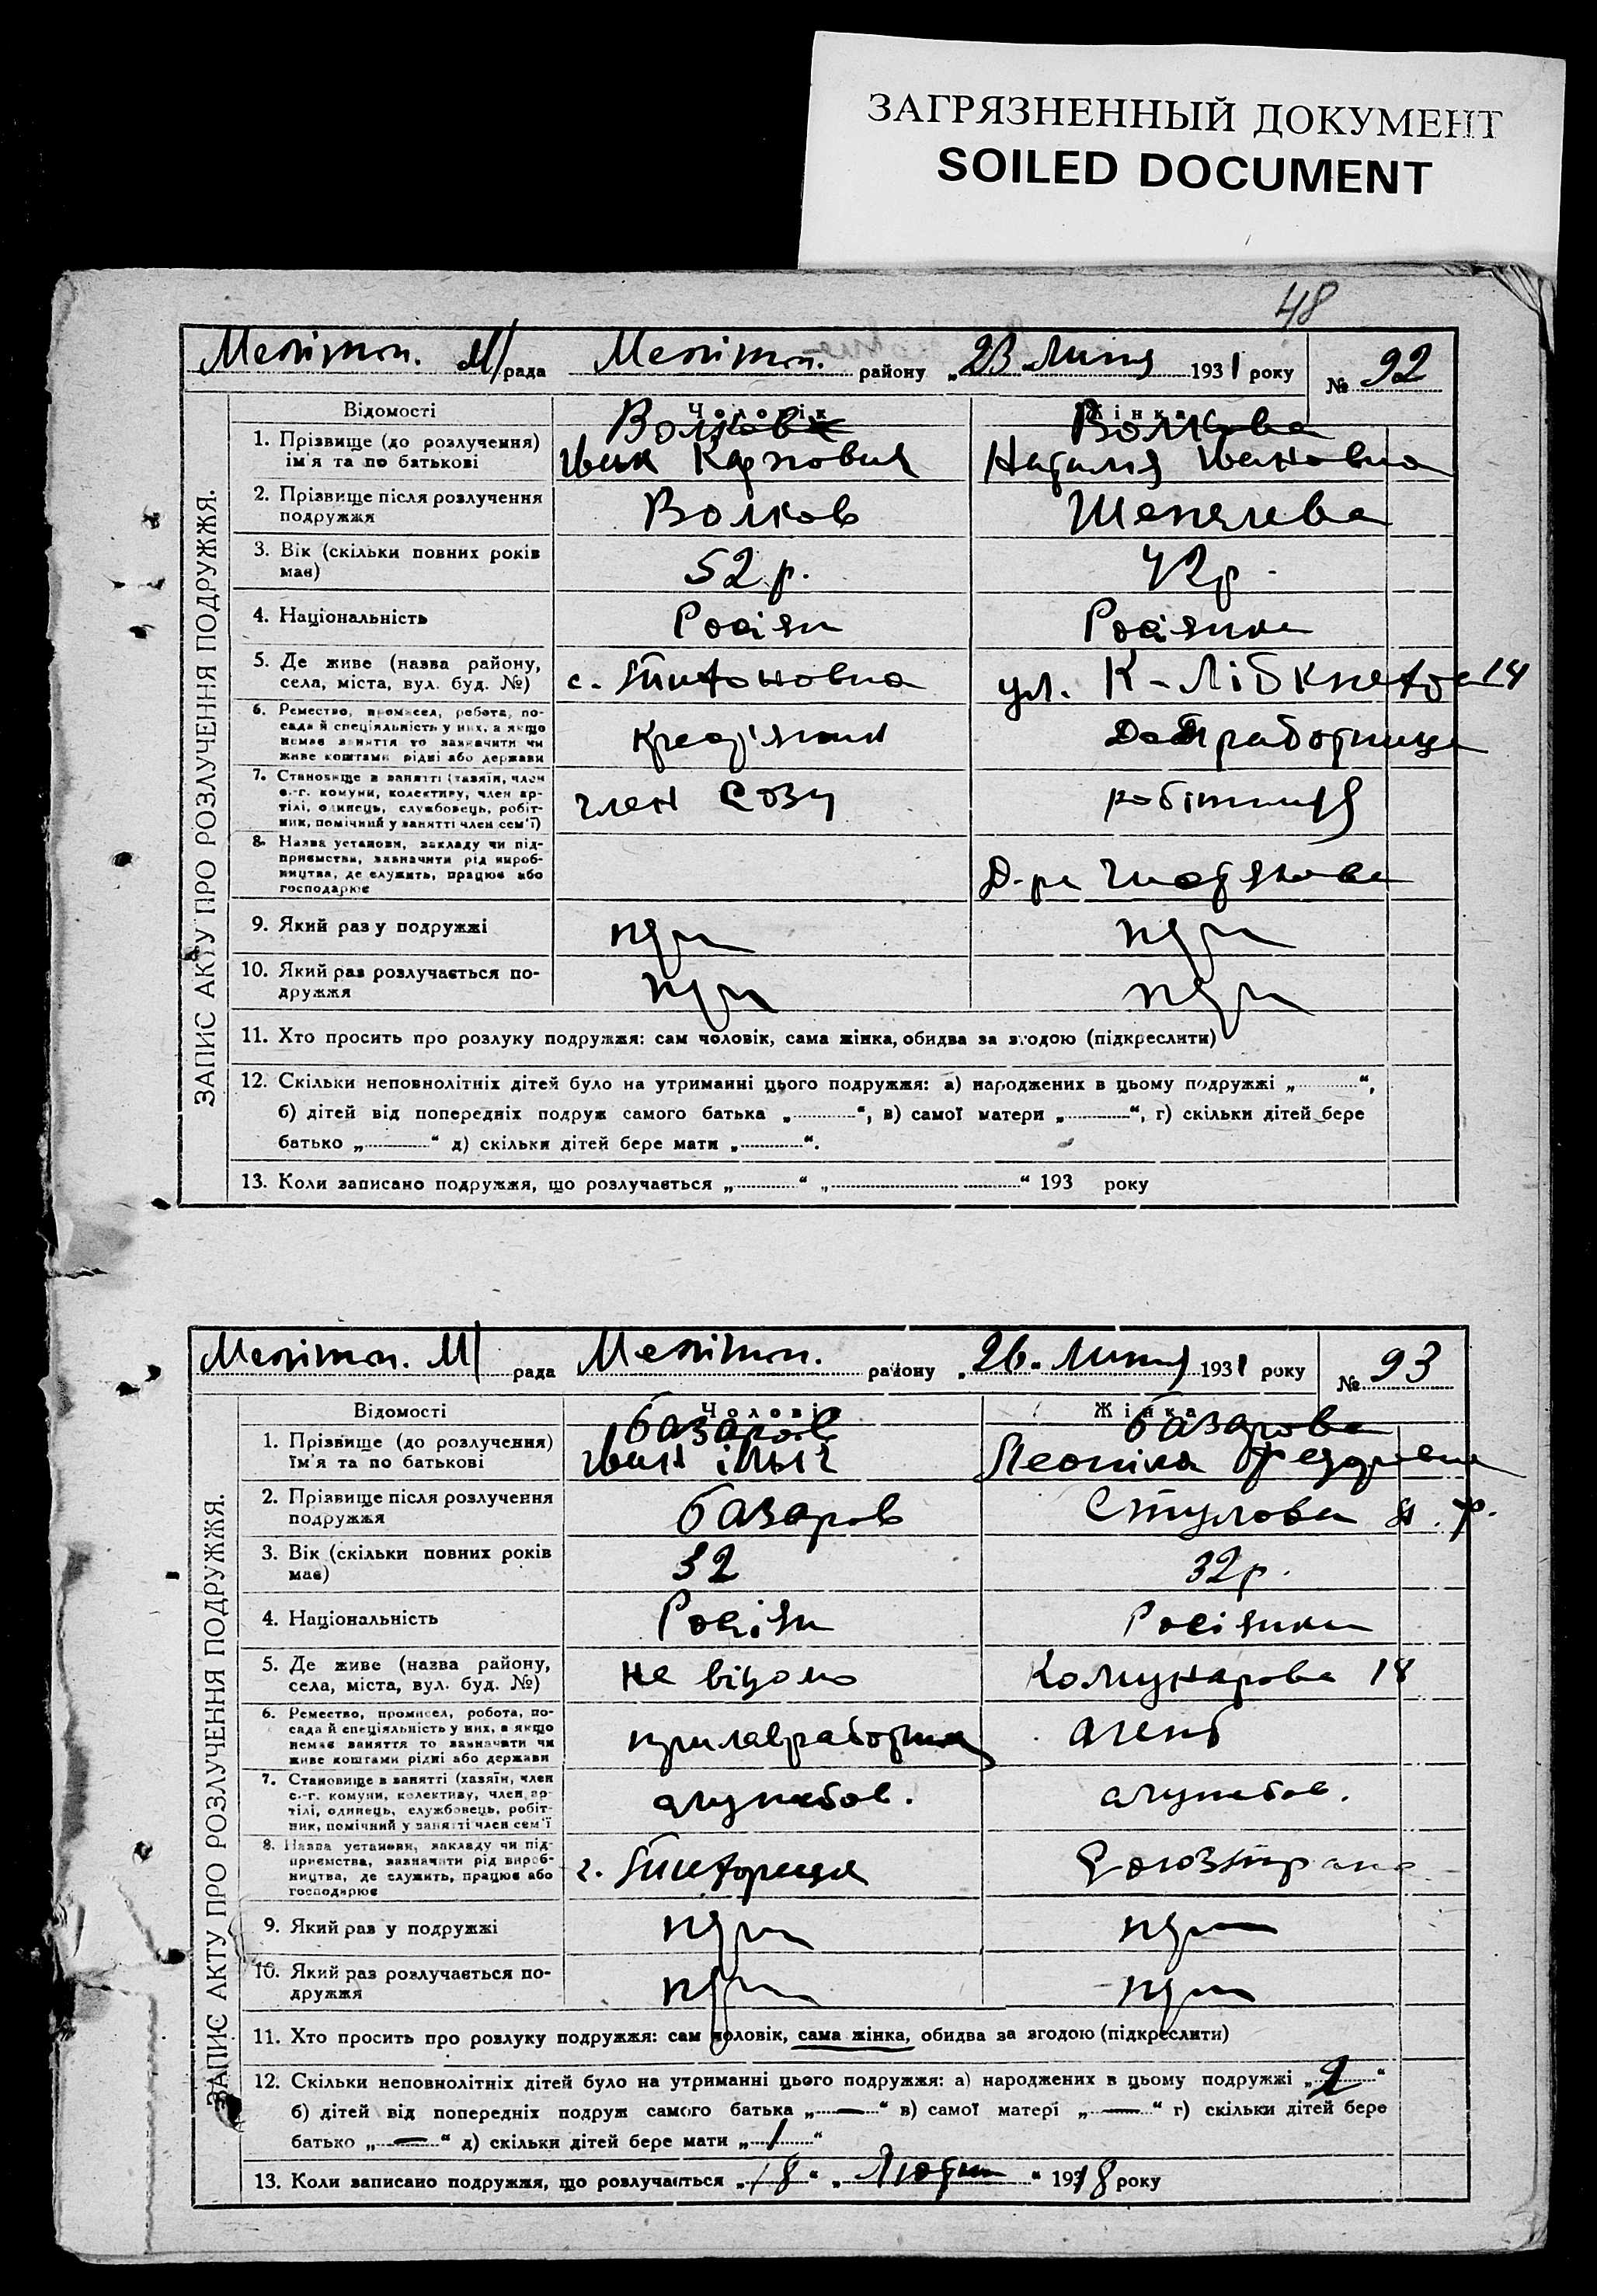 ЗАГРЯЗНЕННЫЙ ДОКУМЕНТ
SOILED DOCUMENT
48
Мелітоп. М/рада Мелітоп. району „23 Липня 1931 року № 92
ЗАПИС АКТУ ПРО РОЗЛУЧЕННЯ ПОДРУЖЖЯ.
Відомості Чоловік Жінка
Волков Волкова
1. Прізвище (до розлучення) ім'я та по батькові Іван Карпович Наталія Івановна
2. Прізвище після розлучення подружжя Волков Шепелева
3. Вік (скільки повних років має) 52 р. 42 р.
4. Національність Росіян Росіянка
5. Де живе (назва району, села, міста, вул. буд. №) с. ул. К-Лібкнехта 14
6. Ремество, промисел, робота, посада й спеціяльність у них, а якщо немає заняття то зазначити чи живе коштами рідні або держави
7. Становище в занятті (хазяїн, член с.-г. комуни, колективу, член артілі, одинець, службовець, робітник, помічний у занятті член сем'ї) член Созу робітниця
8. Назва установи, закладу чи підприємства, зазначити рід виробництва, де служить, працює або господарює Д-ра
9. Який раз у подружжі
10. Який раз розлучається подружжя
11. Хто просить про розлуку подружжя: сам чоловік, сама жінка, обидва за згодою (підкреслити)
12. Скільки неповнолітніх дітей було на утриманні цього подружжя: а) народжених в цьому подружжі „..........“,
б) дітей від попередніх подруж самого батька „..........“, в) самої матери „..........“, г) скільки дітей бере
батько „..........“ д) скільки дітей бере мати „..........“.
13. Коли записано подружжя, що розлучається „..........“ „....................“ 193 року
Мелітоп. М/ рада Мелітоп. району „26 Липня 1931 року № 93
ЗАПИС АКТУ ПРО РОЗЛУЧЕННЯ ПОДРУЖЖЯ.
Відомості Чоловік Жінка
базаров базарова
1. Прізвище (до розлучення) Їм'я та по батькові Іван ільич
2. Прізвище після розлучення подружжя базаров Стулова
3. Вік (скільки повних років має) 32 32 р.
4. Національність Росіян Росіянка
5. Де живе (назва району, села, міста, вул. буд. №) не відомо Комунарова 18
6. Ремество, промисел, робота, посада й спеціяльність у них, а якщо немає заняття то зазначити чи живе коштами рідні або держави агент
7. Становище в занятті (хазяїн, член с.-г. комуни, колективу, член артілі, одинець, службовець, робітник, помічний у занятті член сем'ї службов. службов.
8. Назва установи, закладу чи підприємства, зазначити рід виробництва, де служить, працює або господарює
9. Який раз у подружжі
10. Який раз розлучається подружжя
11. Хто просить про розлуку подружжя: сам чоловік, сама жінка, обидва за згодою (підкреслити)
12. Скільки неповнолітніх дітей було на утриманні цього подружжя: а) народжених в цьому подружжі „2“
б) дітей від попередніх подруж самого батька „—“ в) самої матері „—“ г) скільки дітей бере
батько „—“ д) скільки дітей бере мати „1“
13. Коли записано подружжя, що розлучається „18“ „Лютня“ 1918 року